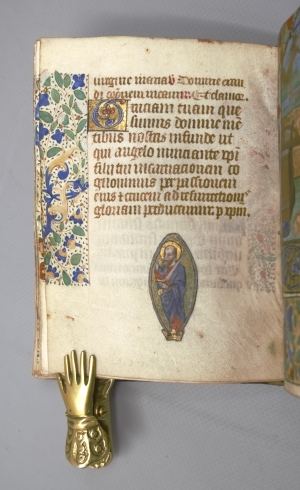 uirgine maria ℣ Domine exau
di oronem meam. ℟ Et clamor.
Graciam tuam que
sumus domine me
tibus nostris infunde ut
qui angelo nunciante xpi
filii tui incarnacionem co
gnouimus per passionem
eius et crucem ad resurrectionis
gloriam perducamur. p xpm.